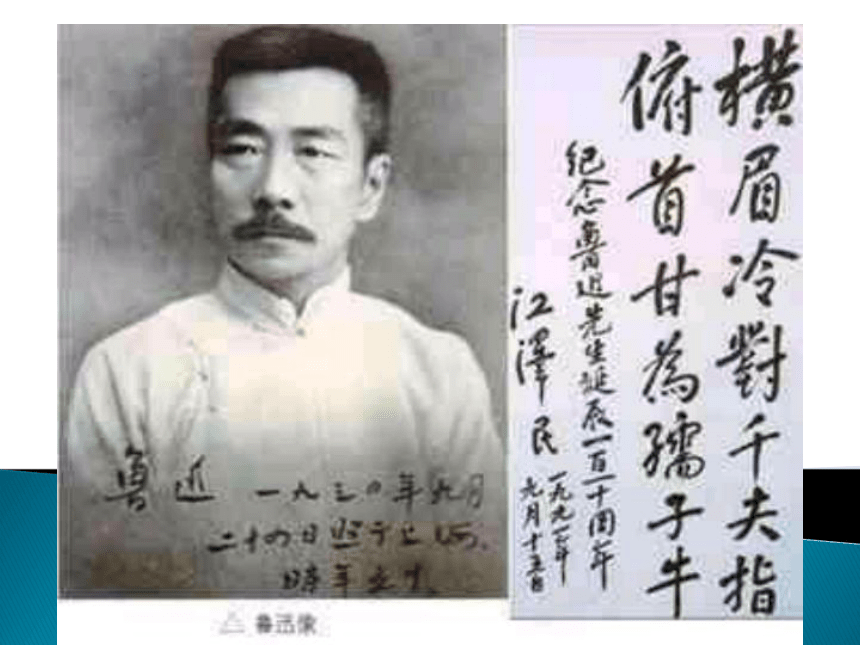 魯迅 一九三〇年九月
二十四日照于上海,
時年五十.
△ 鲁迅像
橫眉冷對千夫指
俯首甘為孺子牛
纪念魯迅先生诞辰一百一十周年
江澤民
一九九一年
九月十五日